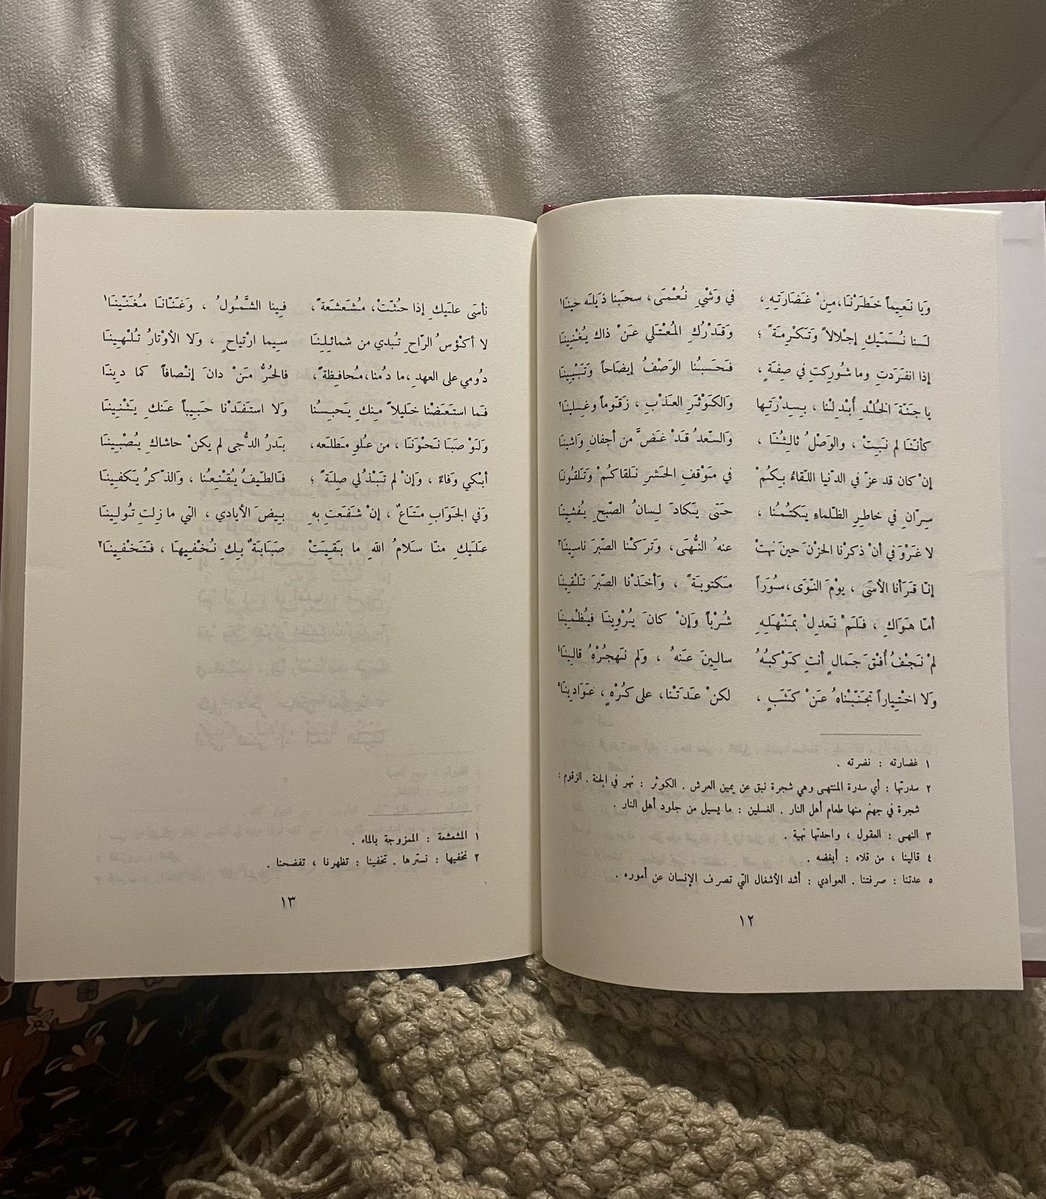 وَيَا نَعِيماً خَطَرْنَا، مِنْ غَضَارَتِهِ ، في وَشْيِ نُعْمَى، سحَبنا ذَيلَه حينَا١
لَسنا نُسَمّيكِ إجْلالاً وَتَكْرِمَةً ؛ وَقَدْرُكِ المُعْتَلي عَنْ ذاك يُغْنِينَا
إذا انفرَدَتِ وما شُورِكتِ في صِفَةٍ ، فَحَسبُنا الوَصْفُ إيضَاحاً وَتَبْيِينَا
يا جَنّةَ الخُلْدِ أُبْدِلْنا ، بسِدْرَتِها والكَوْثَرِ العَذْبِ ، زَقّوماً وغِسلينا٢
كأنّنَا لم نَبِتْ ، والوَصْلُ ثالِثُنَا ، وَالسّعدُ قَدْ غَضَّ من أجفانِ وَاشِينَا
إنْ كان قد عزّ في الدّنيا اللّقاءُ بكُمْ في مَوْقفِ الحَشرِ نَلقاكُمْ وَتَلقُونَا
سِرّانِ في خاطِرِ الظّلماءِ يَكتُمُنا ، حَتى يَكادَ لِسانُ الصّبحِ يُفشينَا
لا غَرْوَ في أنْ ذكرْنا الحزْنَ حينَ نهتْ عنهُ النُّهَى، وَتركْنا الصّبرَ ناسِينَا٣
إنّا قرَأنا الأسَى ، يوْمَ النّوَى، سُوَراً مَكتوبَةً ، وَأخَذْنا الصّبرَ تَلقِينَا
أمّا هَوَاكِ ، فلَمْ نَعدِلْ بمَنْهَلِهِ شُرْباً وَإنْ كانَ يُرْوِينا فيُظْمِينَا
لمْ نَجْفُ أُفْقَ جَمالٍ أنتِ كَوْكبُهُ سالِينَ عَنهُ ، وَلم نَهجُرْهُ قالِينَا٤
وَلا اخْتِياراً تجَنّبْناهُ عَنْ كَثَبٍ ، لكنْ عَدَتْنا، على كُرْهٍ ، عَوَادِينَا٥
١ غضارته : نضرته .
٢ سدرتها : أي سدرة المنتهى وهي شجرة نبق عن يمين العرش . الكوثر : نهر في الجنة . الزقوم :
شجرة في جهنم منها طعام أهل النار . الغسلين : ما يسيل من جلود أهل النار .
٣ النهى : العقول ، واحدتها نهية .
٤ قالينا ، من قلاه : أبغضه .
٥ عدتنا : صرفتنا . العوادي : أشد الأشغال التي تصرف الإنسان عن أموره .
١٢
نأسَى عليَكِ إذا حُثّتْ، مُشَعشَعَةً، فِينا الشَّمُولُ ، وَغَنّانَا مُغَنّينَا١
لا أكْؤسُ الرّاحِ تُبدي من شمائِلِنَا سِيما ارْتياحٍ ، وَلا الأوْتارُ تُلْهِينَا
دُومي على العهدِ، ما دُمنا، مُحافِظةً، فالحُرُّ مَنْ دانَ إنْصافاً كما دِينَا
فَما استَعَضْنا خَليلاً منكِ يَحبِسُنا وَلا استَفَدْنا حَبيباً عَنكِ يَثْنِينَا
وَلَوْ صَبَا نَحْوَنَا ، من عُلوِ مَطلَعه، بَدرُ الدُّجى لم يكنْ حاشاكِ يُصْبِينَا
أبْكي وَفاءً ، وَإنْ لم تَبْذُلي صِلَةً ؛ فَالطّيفُ يُقْنِعُنَا ، وَالذّكرُ يَكفِينَا
وَفي الجَوَابِ مَتَاعٌ ، إنْ شفَعتِ بهِ بِيضَ الأيادي ، التي ما زِلتِ تُولينَا
عَلَيكِ منّا سَلامُ اللهِ ما بَقِيَتْ صَبَابَةٌ بِكِ نُخْفِيهَا ، فَتَخْفِينَا٢
١ المشعشعة : الممزوجة بالماء .
٢ نخفيها : نسترها . تخفينا : تظهرنا ، تفضحنا .
١٣